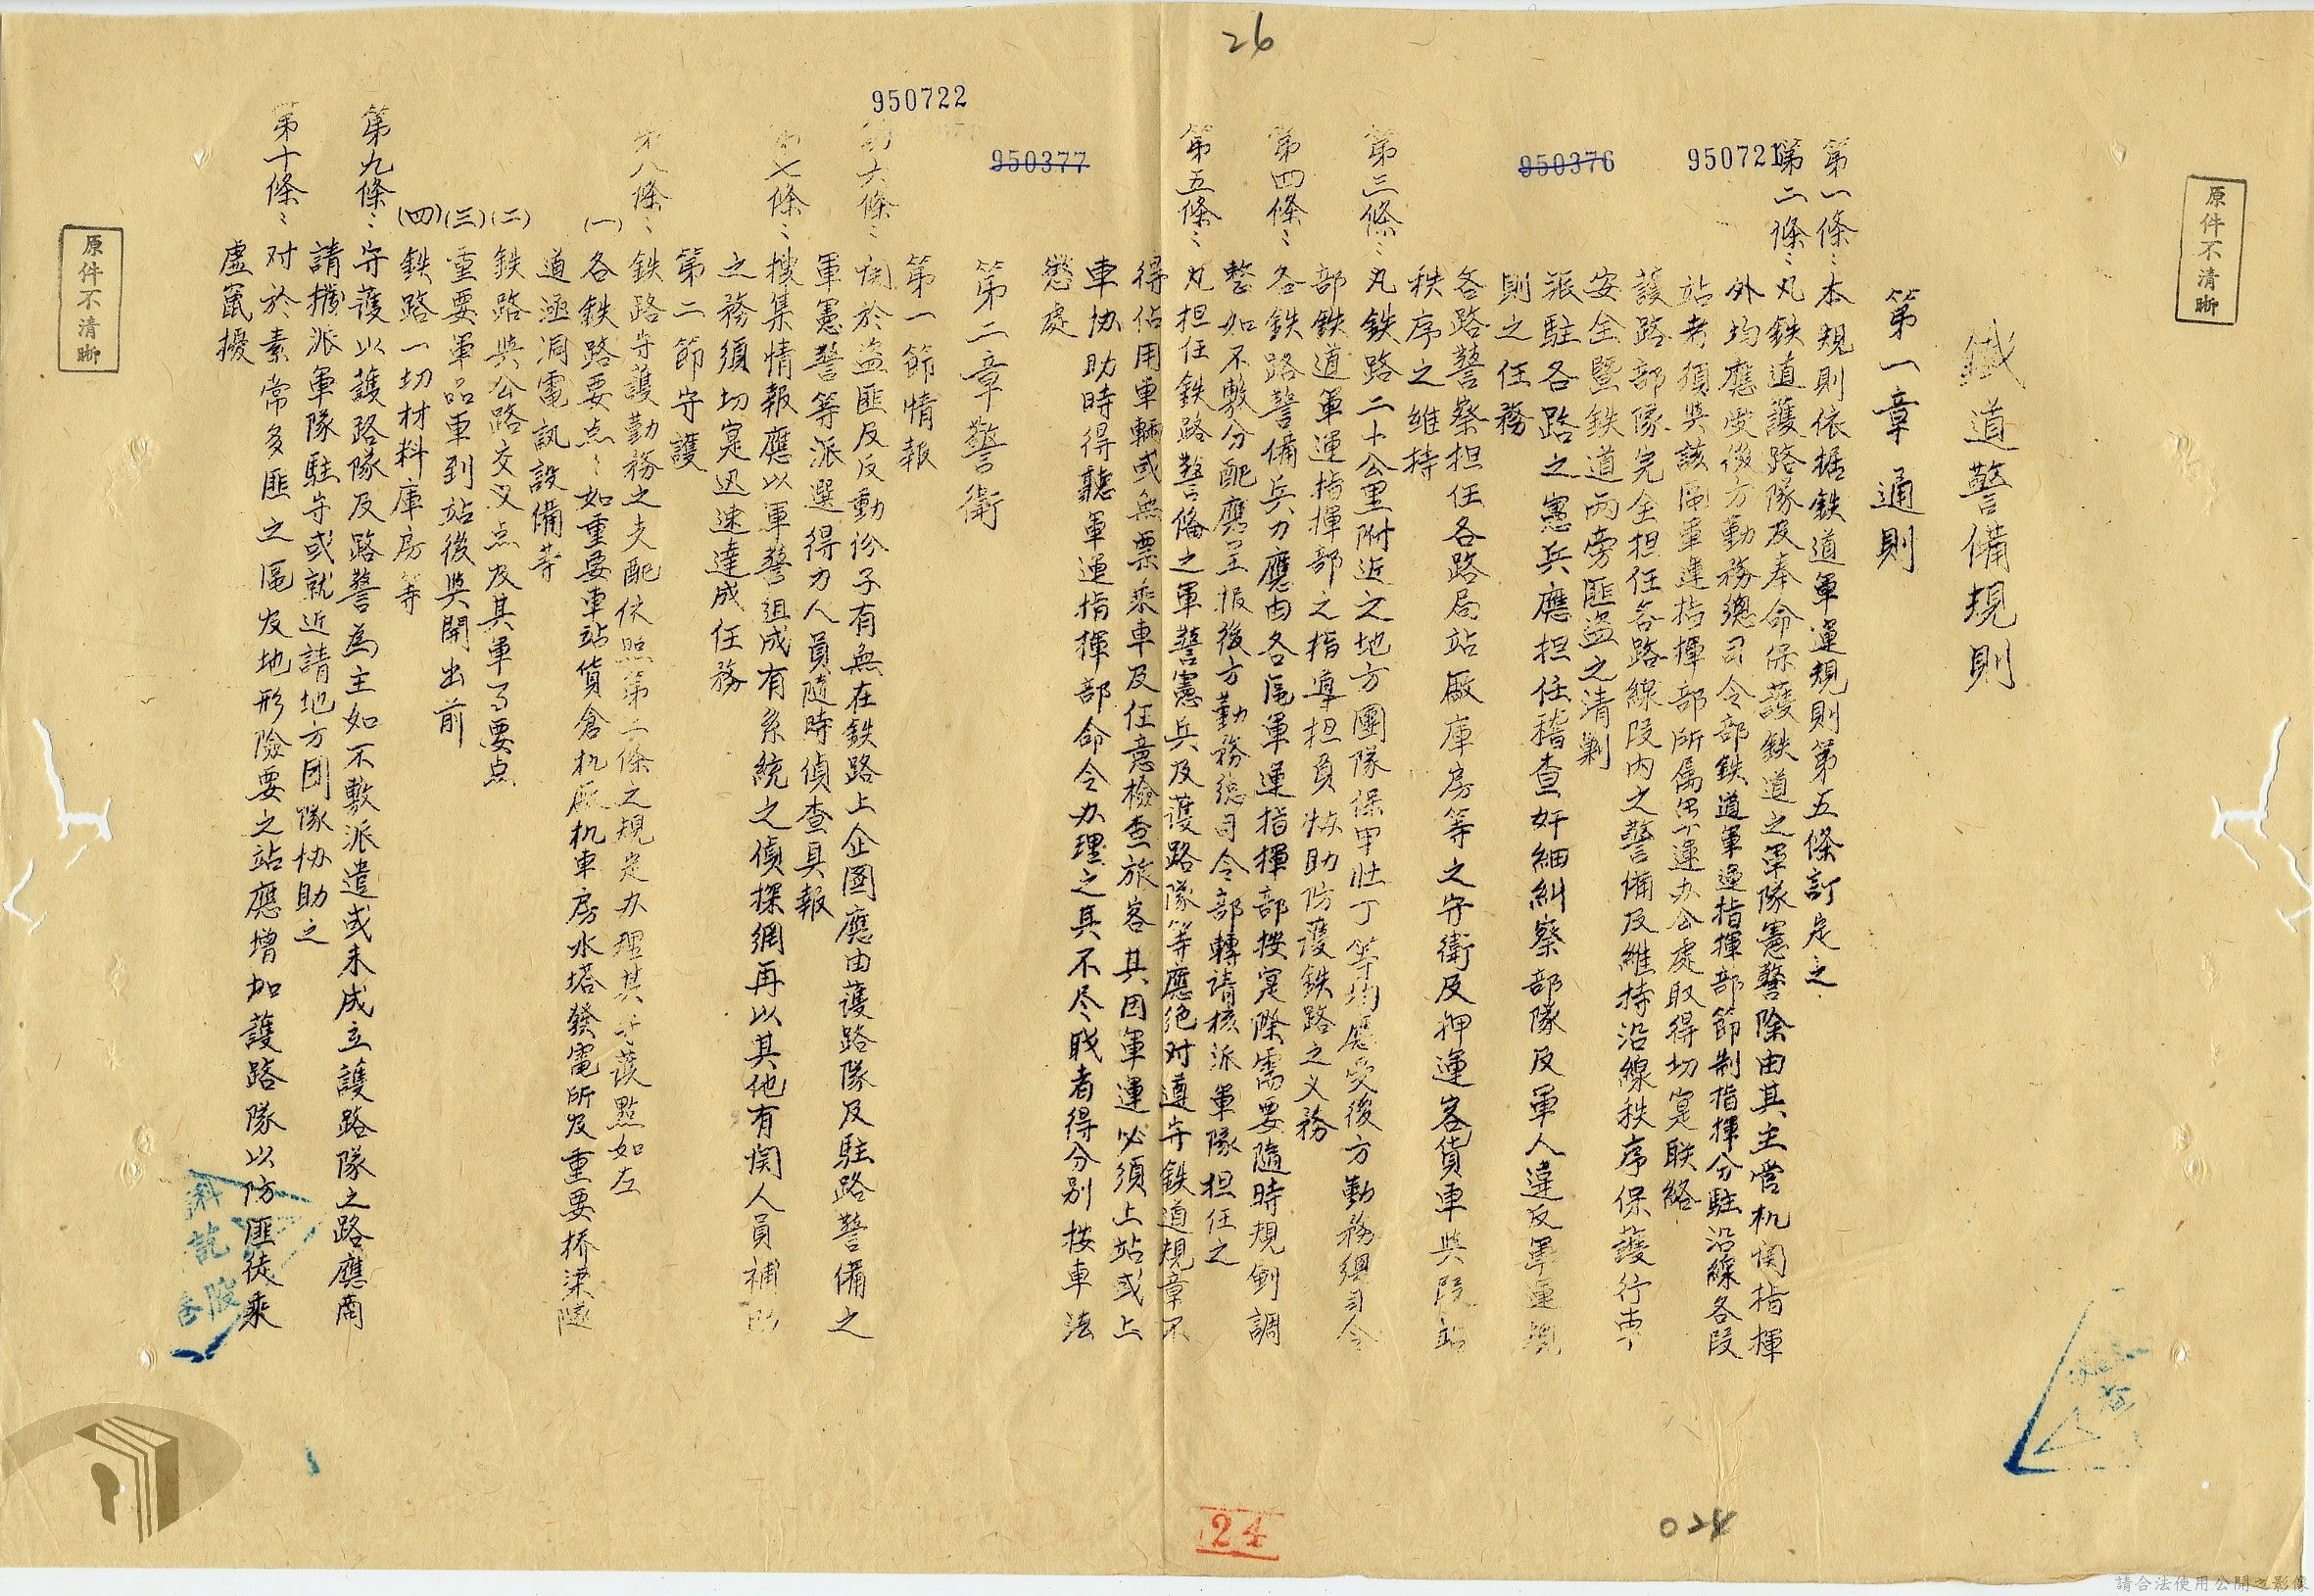 26
950722
950377
950376
950721
原件不清晰
鐵道警備規則
第一章 通則
第一條：本規則依据鉄道軍運規則第五條訂定之
第二條：凡鉄道護路隊及奉命保護鉄道之軍隊憲警除由其主管机関指揮
外均應受後方勤務總司令部鉄道軍運指揮部節制指揮分駐沿線各段
站者須與該區軍運指揮部所屬軍運办公處取得切寔联絡
護路部隊完全担任各路線段内之警備及維持沿線秩序保護行車
安全暨鉄道両旁匪盗之清剿
派駐各路之憲兵應担任稽查奸細糾察部隊及軍人違反軍運規
則之任務
各路警察担任各路局站厰庫房等之守衛及押運客貨車與段站
秩序之維持
第三條：凡鉄路二十公里附近之地方團隊保甲壮丁等均應受後方勤務總司令
部鉄道軍運指揮部之指導担負扶助防護鉄路之义務
第四條：各鉄路警備兵力應由各區軍運指揮部按寔際需要隨時規劃調
整如不敷分配應呈报後方勤務總司令部轉請核派軍隊担任之
第五條：凡担任鉄路警俻之軍警憲兵及護路隊等應絶对遵守鉄道規章不
得佔用車輛或無票乘車及任意檢查旅客其因軍運必須上站或上
車协助時得聽軍運指揮部命令办理之其不尽戝者得分别按車法
懲處
第二章 警衛
第一節 情報
第六條：関於盗匪及反動份子有無在鉄路上企圖應由護路隊及駐路警備之
軍憲警等派選得力人員隨時偵查具報
第七條：搜集情報應以軍警組成有系統之偵探網再以其他有関人員補助
之務須切寔迅速達成任務
第二節 守護
第八條：鉄路守護勤務之支配依照第二條之規定办理其守護點如左
(一)各鉄路要点：如重要車站貨倉机厰机車房水塔發電所及重要桥梁隧
道涵洞電訊設備等
(二)鉄路與公路交义点及其軍事要点
(三)重要軍品車到站後與開出前
(四)鉄路一切材料庫房等
第九條：守護以護路隊及路警為主如不敷派遣或未成立護路隊之路應商
請撥派軍隊駐守或就近請地方团隊协助之
第十條：对於素常多匪之區及地形險要之站應增加護路隊以防匪徒乘
虚竄擾
原件不清晰
24
024
請合法使用公開之影像